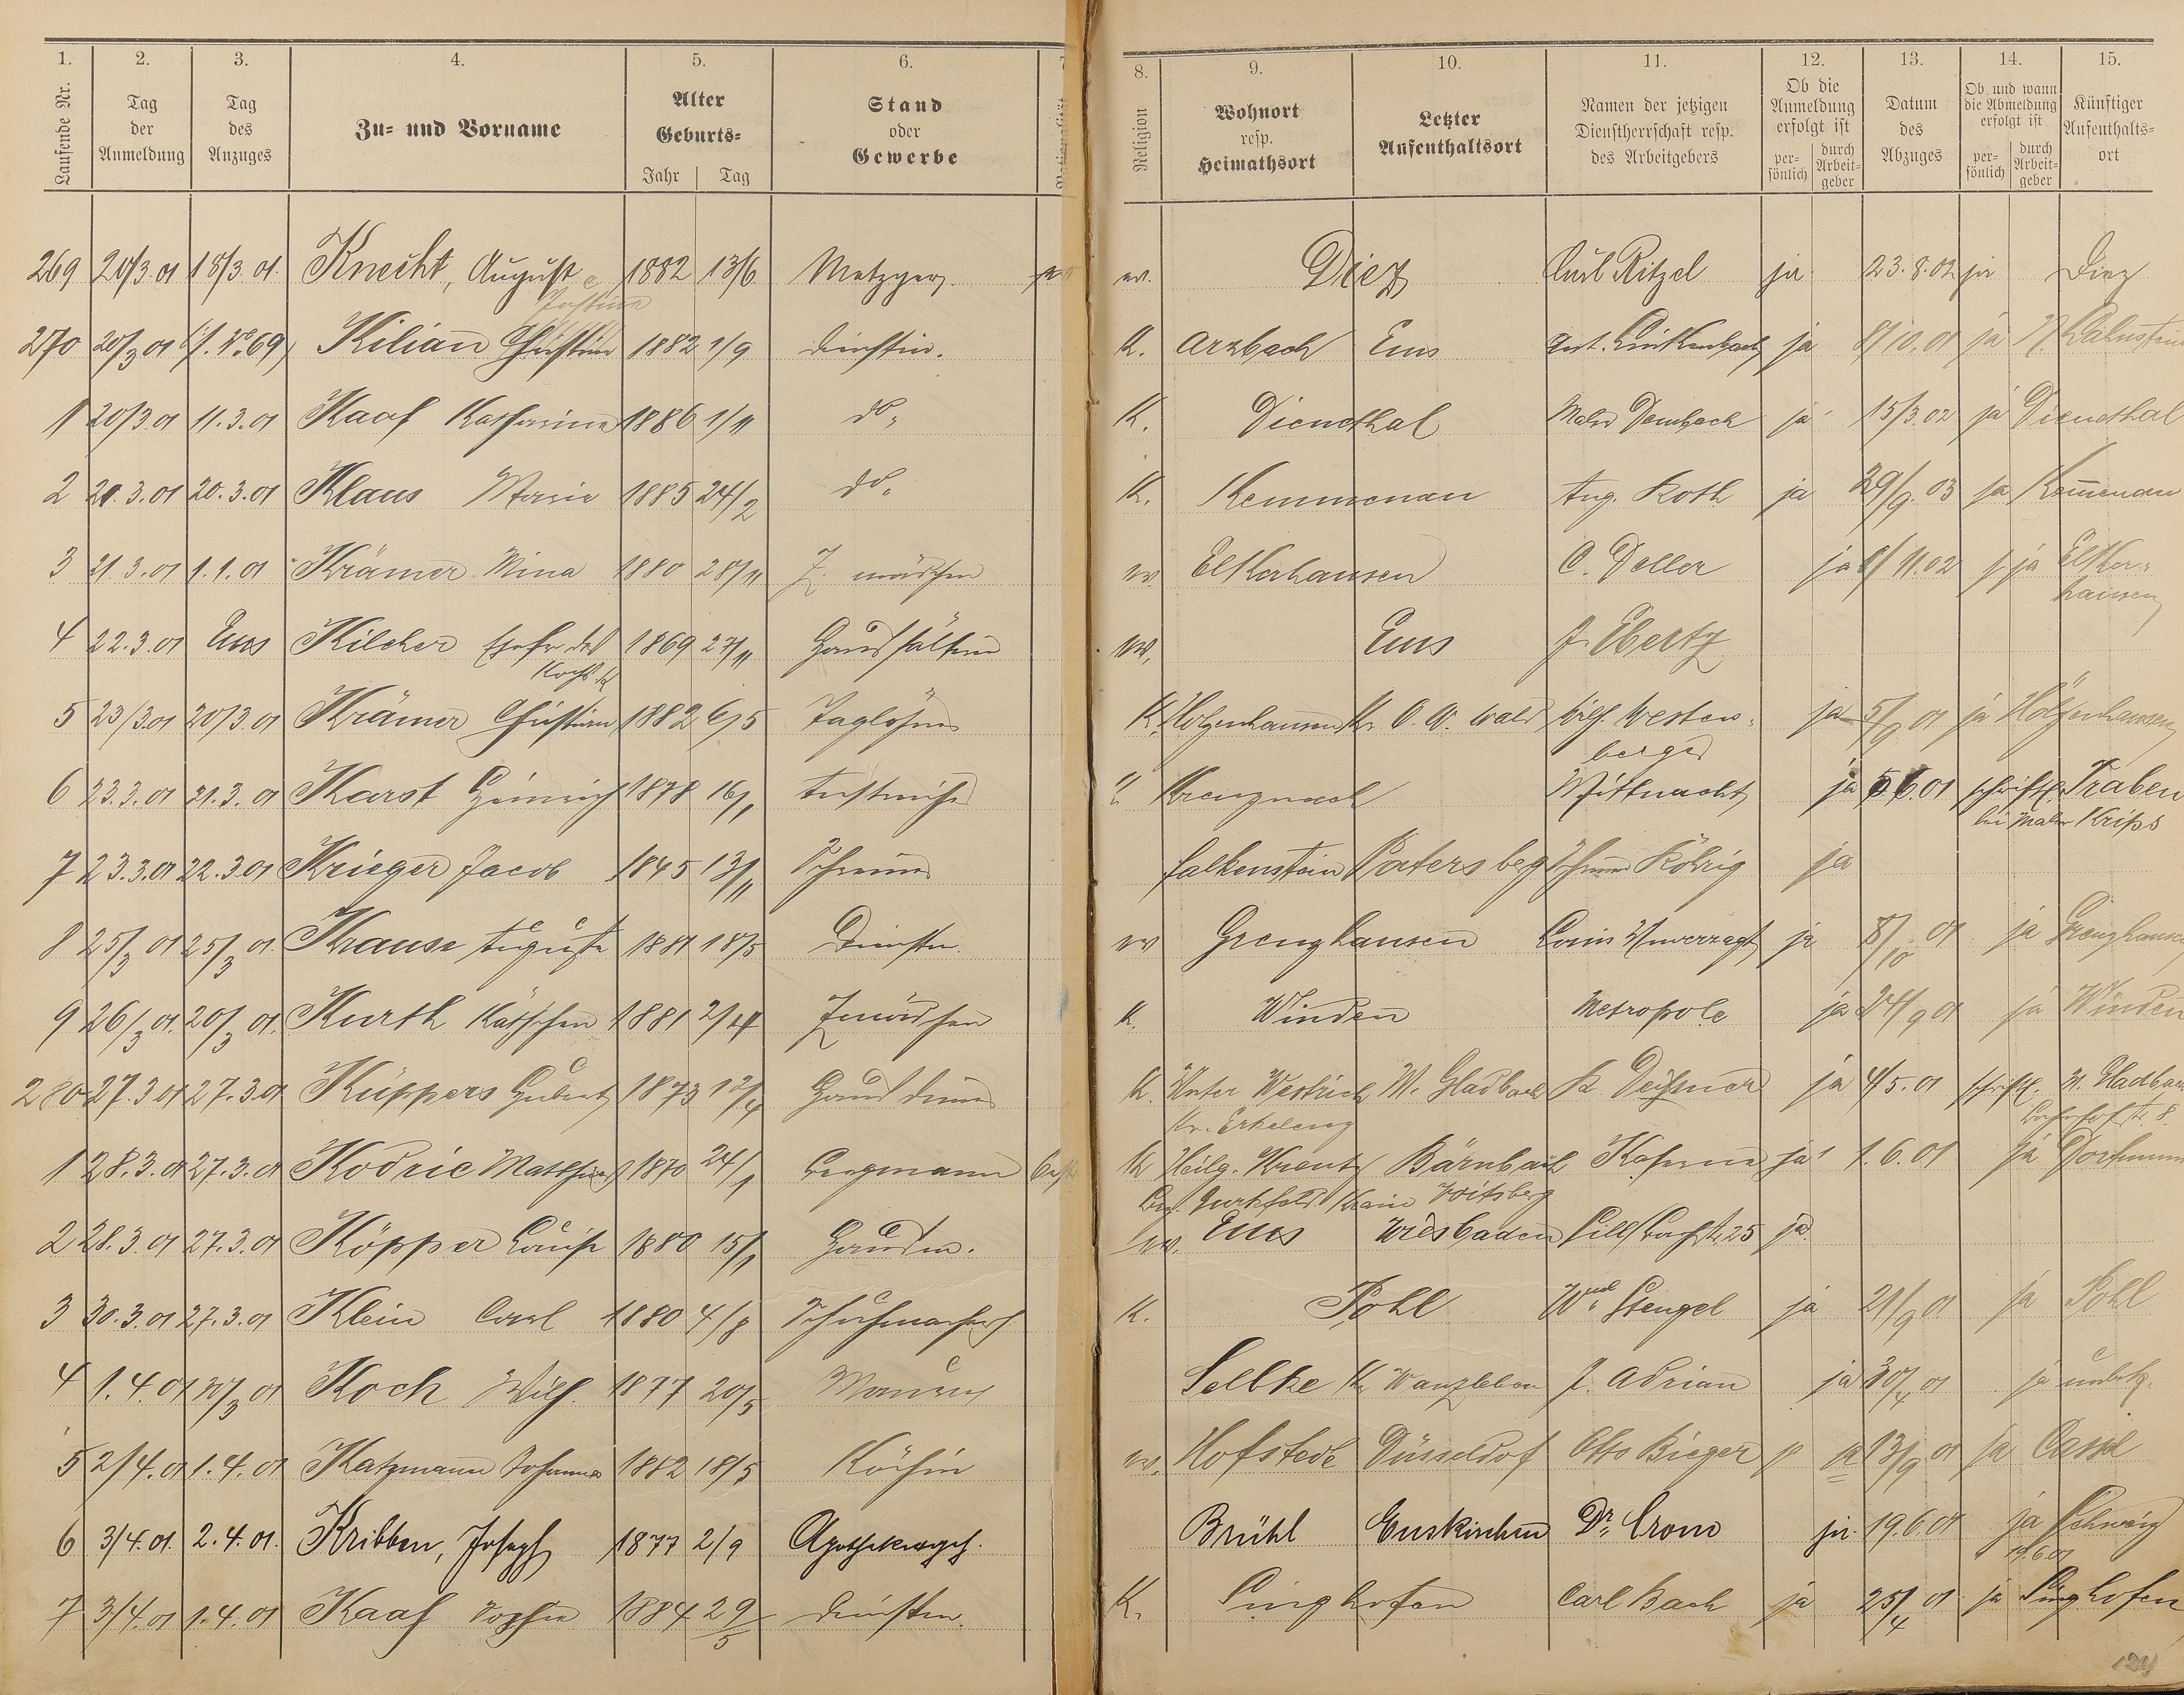 1. 2. 3. 4. 5. 6. 7 8. 9. 10. 11. 12. 13. 14. 15.
Laufende Nr. Tag der Anmeldung Tag des Anzuges Zu- und Vorname Alter Geburts- Jahr Tag Stand oder Gewerbe Religion Wohnort resp. Heimathsort Letzter Aufenthaltsort Namen der jetzigen Dienstherrschaft resp. des Arbeitgebers Ob die Anmeldung erfolgt ist per- sönlich durch Arbeit- geber Datum des Abzuges Ob und wann die Abmeldung erfolgt ist per- sönlich durch Arbeit- geber Künftiger Aufenthalts- ort
269 20/3.01 18/3.01. Knecht, August 1882 13/6 Metzger ev. Diez Carl Ritzel ja 23.8.02 ja Diez
270 20/3 01 Kilian Christine 1882 1/9 Dienstm. K. Arzbach Ems Ant. Linkenbach ja 8/10.01 ja N. Lahnstein
1 20/3.01 11.3.01 Kaaf Katharina 1886 1/11 do. K. Dienethal Maler Dembach ja 15/3.02 ja Dienethal
2 21.3.01 20.3.01 Klaus Marie 1885 24/2 do. K. Kemmenau Aug. Roth ja 29/9.03 ja Kem̄enau
3 21.3.01 1.1.01 Krämer Mina 1880 28/11 Z. mädchen ev. Elkerhausen C. Deller ja 8/11.02 ja Elker-
hausen
4 22.3.01 Ems Kilcher Ehefr. des 1869 27/11 Haushälterin ev. Ems J. Ebertz
Kochs
5 23/3.01 20/3.01 Krämer Christian 1882 6/5 Taglöhner K. Holzenhausen Kr. O. W. wald Wilh. Wester-
berger ja 5/9 01 ja Holzenhausen
6 23.3.01 21.3.01 Karst Heinrich 1878 16/1 Anstreicher Kreuznach Mittnacht ja 5.6.01 schriftl. Traben
bei Maler Krips
7 23.3.01 22.3.01 Krieger Jacob 1845 13/11 Schreiner Falkenstein Patersberg Schreiner Röhrig ja
8 25/3 01 25/3 01. Krause Auguste 1881 18/5 Dienstm. ev Grenzhausen Louis Unverzagt ja 8/10 01 ja Grenzhausen
9 26/3 01. 20/3 01. Kurth Käthchen 1881 2/4 Zmädchen K. Winden Metropole ja 24/9 01 ja Winden
280 27.3 01 27.3.01 Küppers Hubert 1873 12/4 Hausdiener K. Unter Westrich M. Gladbach Deissner ja 4/5.01 schriftl. M. Gladbach
Kr. Erkelenz Bahnhofstr. 8.
1 28.3.01 27.3.01 Kodric Matthias 1870 24/1 Bergmann K Heilg. Kreutz Bärnbach Kaserne ja 1.6.01 ja Dortmund
Bez. Gurkfeld Krain Voitsberg
2 28.3.01 27.3.01 Köpper Louise 1880 15/1 Hausm. ev. Ems Wiesbaden 25 ja
3 30.3.01 27.3.01 Klein Carl 1880 4/8 Schuhmacher K. Pohl Wwe. Stengel ja 21/9 01 ja Pohl
4 1.4.01 30/3 01 Koch Wilh. 1877 20/5 Maurer Selbke Kr. Wanzleben J. Adrian ja 30/4 01 ja unbek.
5 2/4.01 1.4.01 Katzmann Johanna 1882 18/5 Köchin ev. Hofstede Düsseldorf Otto Bieger 13/9 01 ja Cassel
6 3/4.01. 2.4.01. Kribben, Joseph 1877 2/9 Apothekergeh. Brühl Euskirchen Dr. Crone ja. 19.6.01 ja Schweiz
19.6.01
7 3/4.01 1.4.01 Kaaf Sophie 1884 29/5 Dienstm. K. Singhofen Carl Bach ja 25/4 01 ja Singhofen